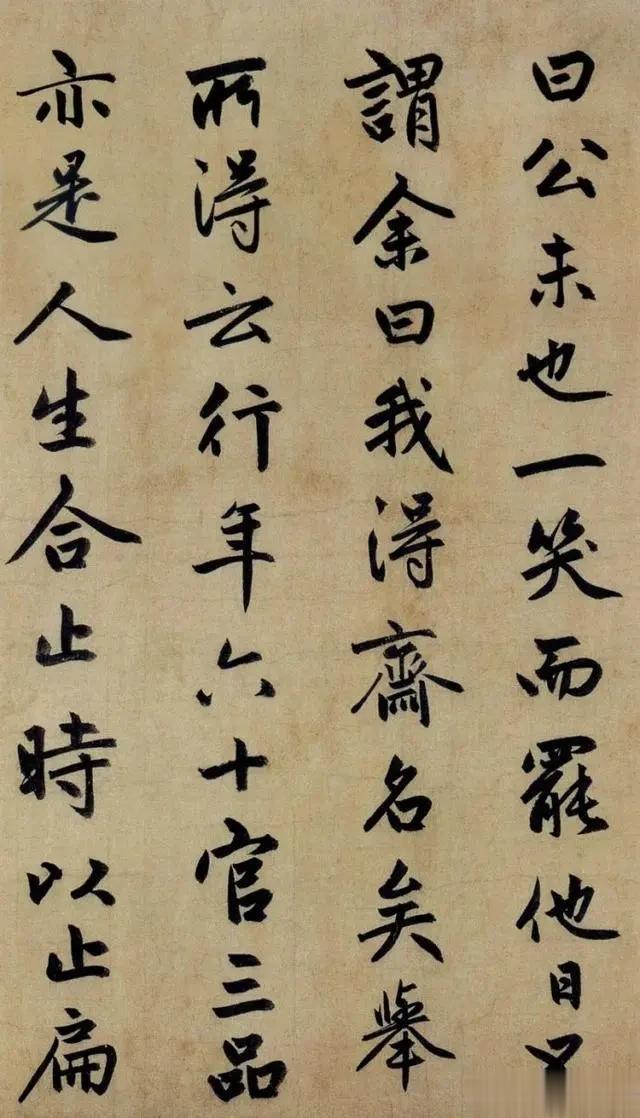 曰公未也一笑而罷他日
謂余曰我得齋名矣舉
所得云行年六十官三品
亦是人生合止時以止扁